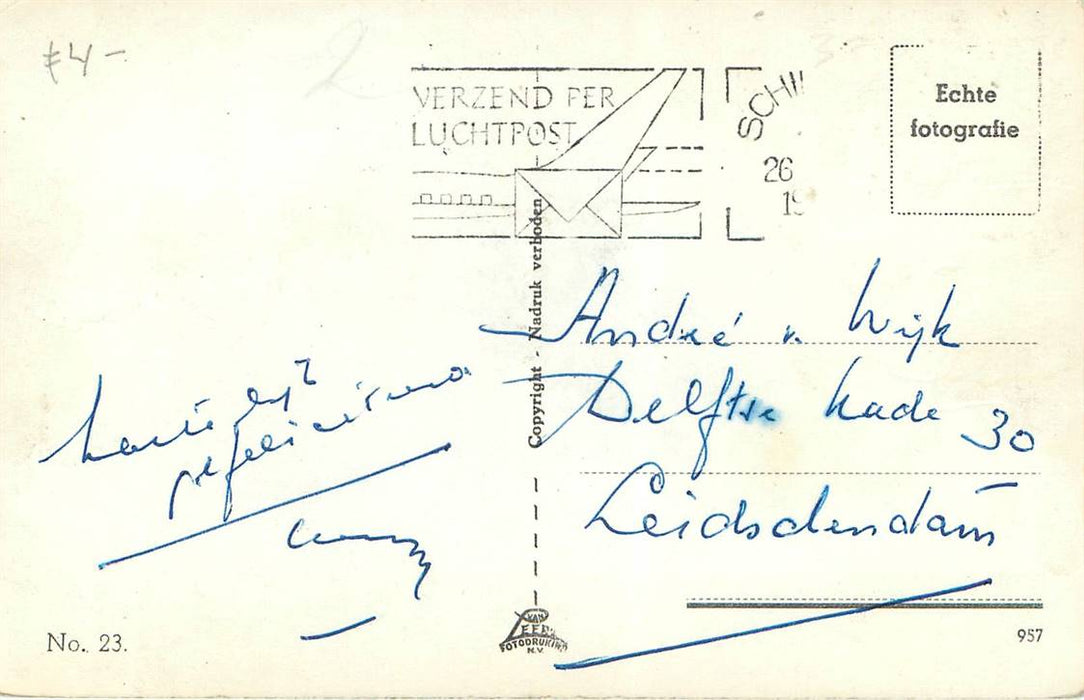 ₤4-
2
VERZEND PER
LUCHTPOST
SCHI
26
19
Echte
fotografie
Copyright - Nadruk verboden
Hartelijk
gefeliciteerd
André v. Wijk
Delftse kade 30
Leidschendam
No. 23.
VAN
LEER'S
FOTODRUKIND.
N.V.
957